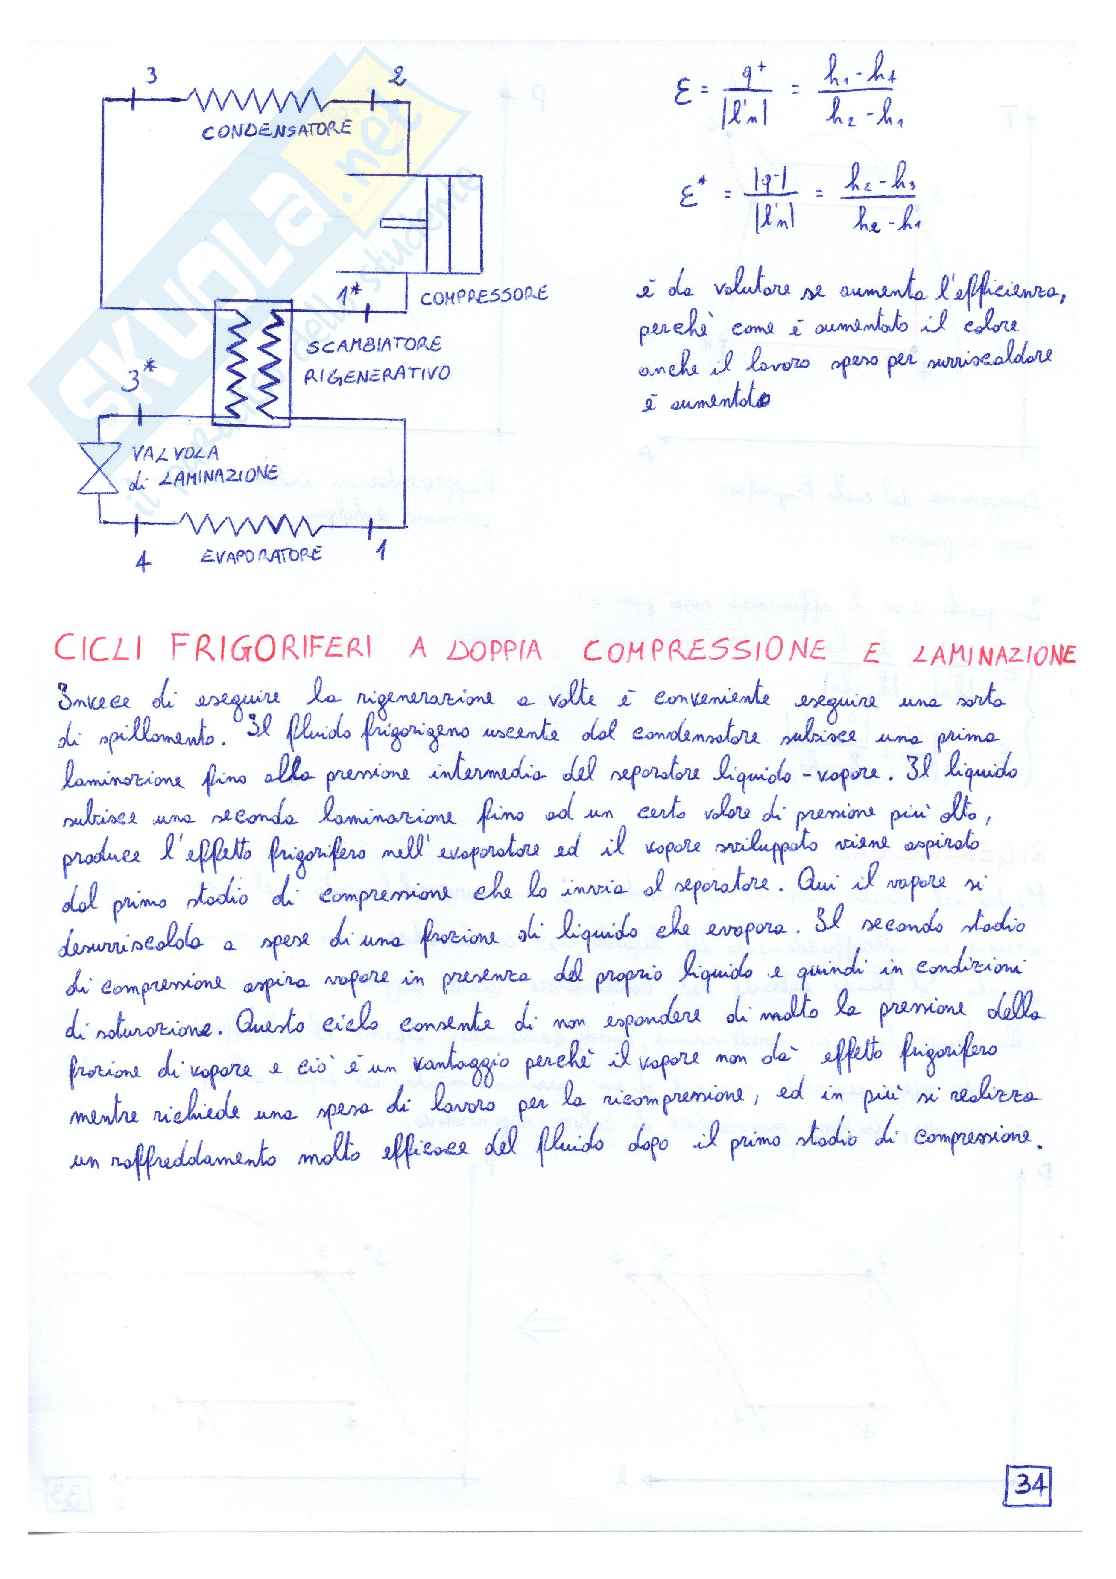 3
2
CONDENSATORE
1*
COMPRESSORE
SCAMBIATORE
RIGENERATIVO
3*
VALVOLA
di LAMINAZIONE
EVAPORATORE
4
1
ε = q⁺ / |l'n| = h₁-h₄ / h₂-h₁
ε* = |q-| / |l'n| = h₂-h₃ / h₂-h₁
è da valutare se aumenta l'efficienza,
perchè come è aumentato il calore
anche il lavoro speso per surriscaldare
è aumentato
CICLI FRIGORIFERI A DOPPIA COMPRESSIONE E LAMINAZIONE
Invece di eseguire la rigenerazione a volte è conveniente eseguire una sorta
di spillamento. Il fluido frigorigeno uscente dal condensatore subisce una prima
laminazione fino alla pressione intermedia del separatore liquido-vapore. Il liquido
subisce una seconda laminazione fino ad un certo valore di pressione più alto,
produce l'effetto frigorifero nell'evaporatore ed il vapore sviluppato viene aspirato
dal primo stadio di compressione che lo invia al separatore. Qui il vapore si
desurriscalda a spese di una frazione di liquido che evapora. Il secondo stadio
di compressione aspira vapore in presenza del proprio liquido e quindi in condizioni
di saturazione. Questo ciclo consente di non espandere di molto la pressione della
frazione di vapore e ciò è un vantaggio perchè il vapore non dà effetto frigorifero
mentre richiede una spesa di lavoro per la ricompressione, ed in più si realizza
un raffreddamento molto efficace del fluido dopo il primo stadio di compressione.
34
SKUOLA.net